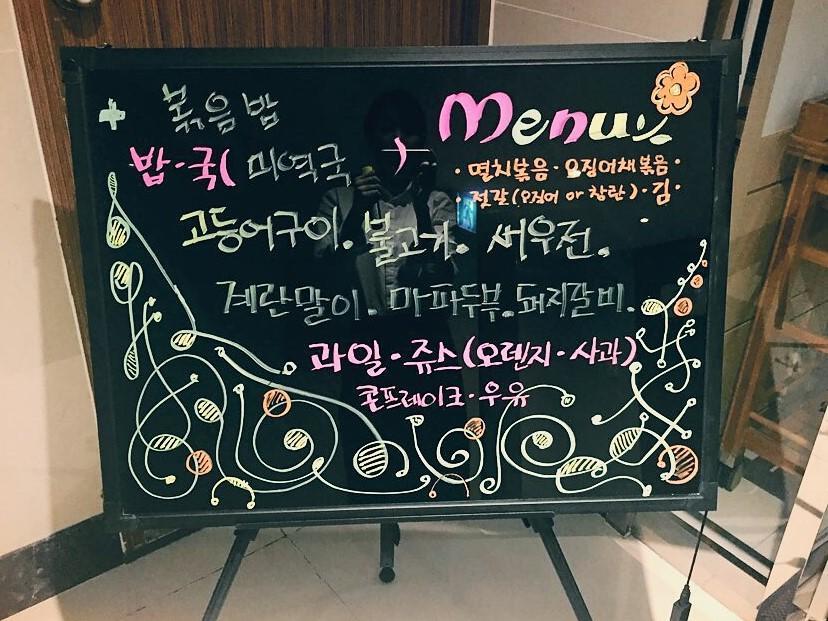 볶음밥
Menu
밥·국(미역국)
·멸치볶음·오징어채볶음·
·젓갈(오징어 or 창란)·김·
고등어구이. 불고기. 새우전.
계란말이. 마파두부. 돼지갈비.
과일·쥬스(오렌지·사과)
콘프레이크·우유